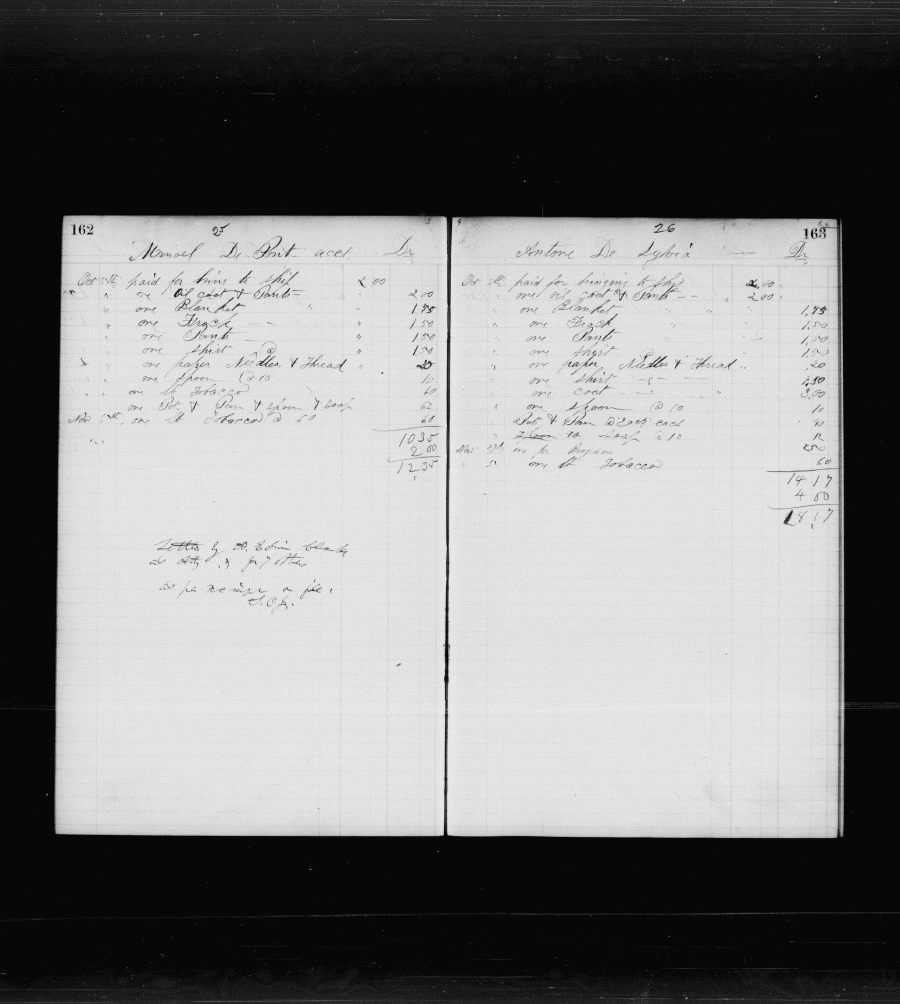 162
25
Manoel De Pont acct. Dr
Oct 5th paid for bring to ship 2 00
" one Oil coat & Pants 2 00
" one Blanket " 1,75
" one Frock 1,50
" one Pants 1,50
" one shirt @ 1 50
" one paper Needles & Thread " 20
" one spoon @ 10 10
" one lb Tobacco 60
" one Pot & Pan & spoon & soap 62
Nov 5th, one lb Tobacco @ 60 60
1035
2 00
1235
Settled by A. Edwin Clark
as Atty & for 7 other
as per on file.
163
26
Antone De Sylvia Dr.
Oct 5th paid for bringing to ship 2,00
" one oil coat & Pants 2 00
" one Blanket " " " 1,75
" one Frock 1,50
" one Pants 1,50
" one shirt 150
" one paper Needles & Thread " 20
" one shirt 1,50
" one coat " 3,00
" one spoon @ 10 10
Pot & Pan @ 20c each 40
" spoon to soap @ 12 12
Nov one pr 250
" one lb Tobacco 60
14 17
4 00
1 8 1 7